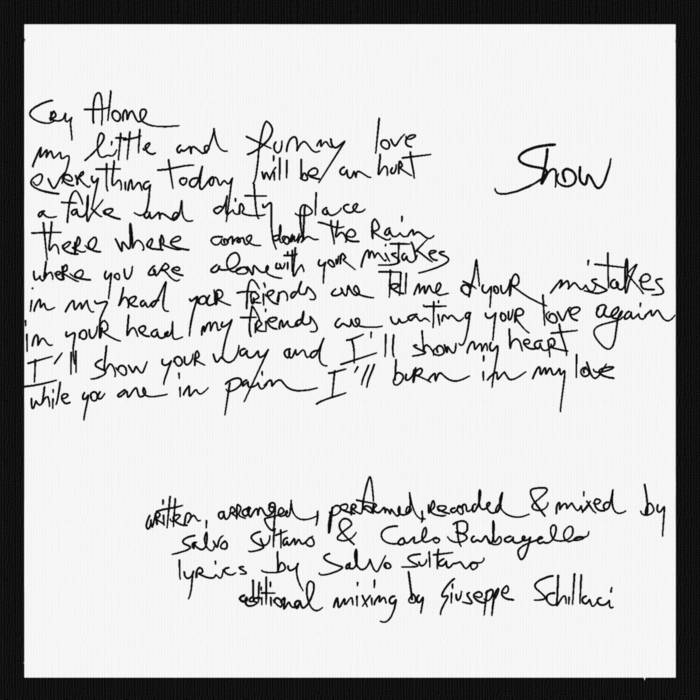 Cry Alone
my little and funny love
Show
everything today will be an hurt
a fake and dirty place
there where come down the Rain
where you are alone with your mistakes
in my head your friends are tell me of your mistakes
in your head my friends are waiting your love again
I'll show your way and I'll show my heart
while you are in pain I'll burn in my love
written, arranged, performed, recorded & mixed by
Salvo Sultano & Carlo Barbagallo
lyrics by Salvo Sultano
additional mixing by Giuseppe Schillaci